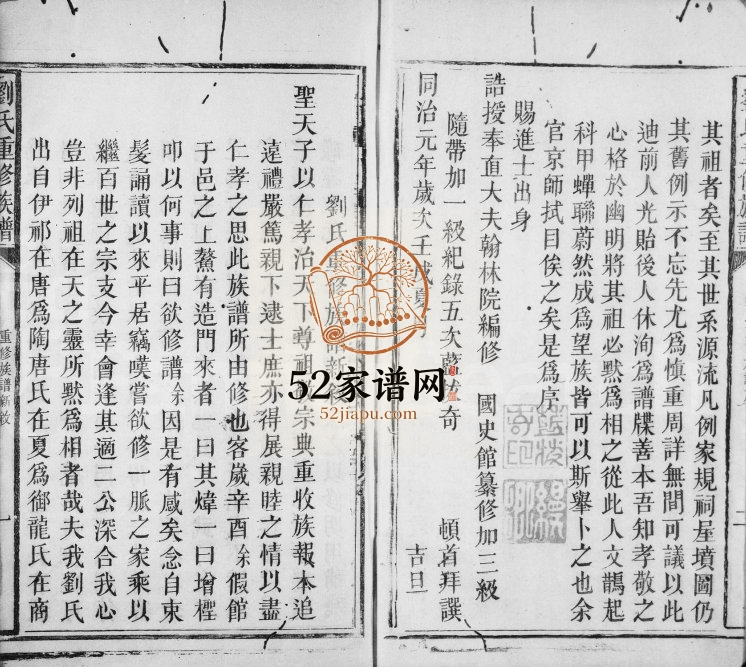 其祖者矣至其世系源流凡例家規祠屋墳圖仍
其舊例示不忘先尤爲慎重周詳無間可議以此
迪前人光貽後人休洵爲譜牒善本吾知孝敬之
心格於幽明將其祖必默爲相之從此人文鵲起
科甲蟬聯蔚然成爲望族皆可以斯舉卜之也余
官京師拭目俟之矣是爲序
賜進士出身
誥授奉直大夫翰林院編修 國史館纂修加三級
隨帶加一級紀錄五次 奇 頓首拜譔
同治元年歲次壬戌夏 吉旦
劉氏重修族譜新
聖天子以仁孝治天下尊祖 宗典重收族報本追
遠禮嚴篤親下逮士庶亦得展親睦之情以盡
仁孝之思此族譜所由修也客歲辛酉余假館
于邑之上鰲有造門來者一曰其煒一曰增檉
叩以何事則曰欲修譜余因是有感矣念自束
髮誦讀以來平居竊嘆嘗欲修一脈之家乘以
繼百世之宗支今幸會逢其適二公深合我心
豈非列祖在天之靈所默爲相者哉夫我劉氏
出自伊祁在唐爲陶唐氏在夏爲御龍氏在商
劉氏重修族譜
重修族譜新敘
一
52家谱网
52jiapu.com